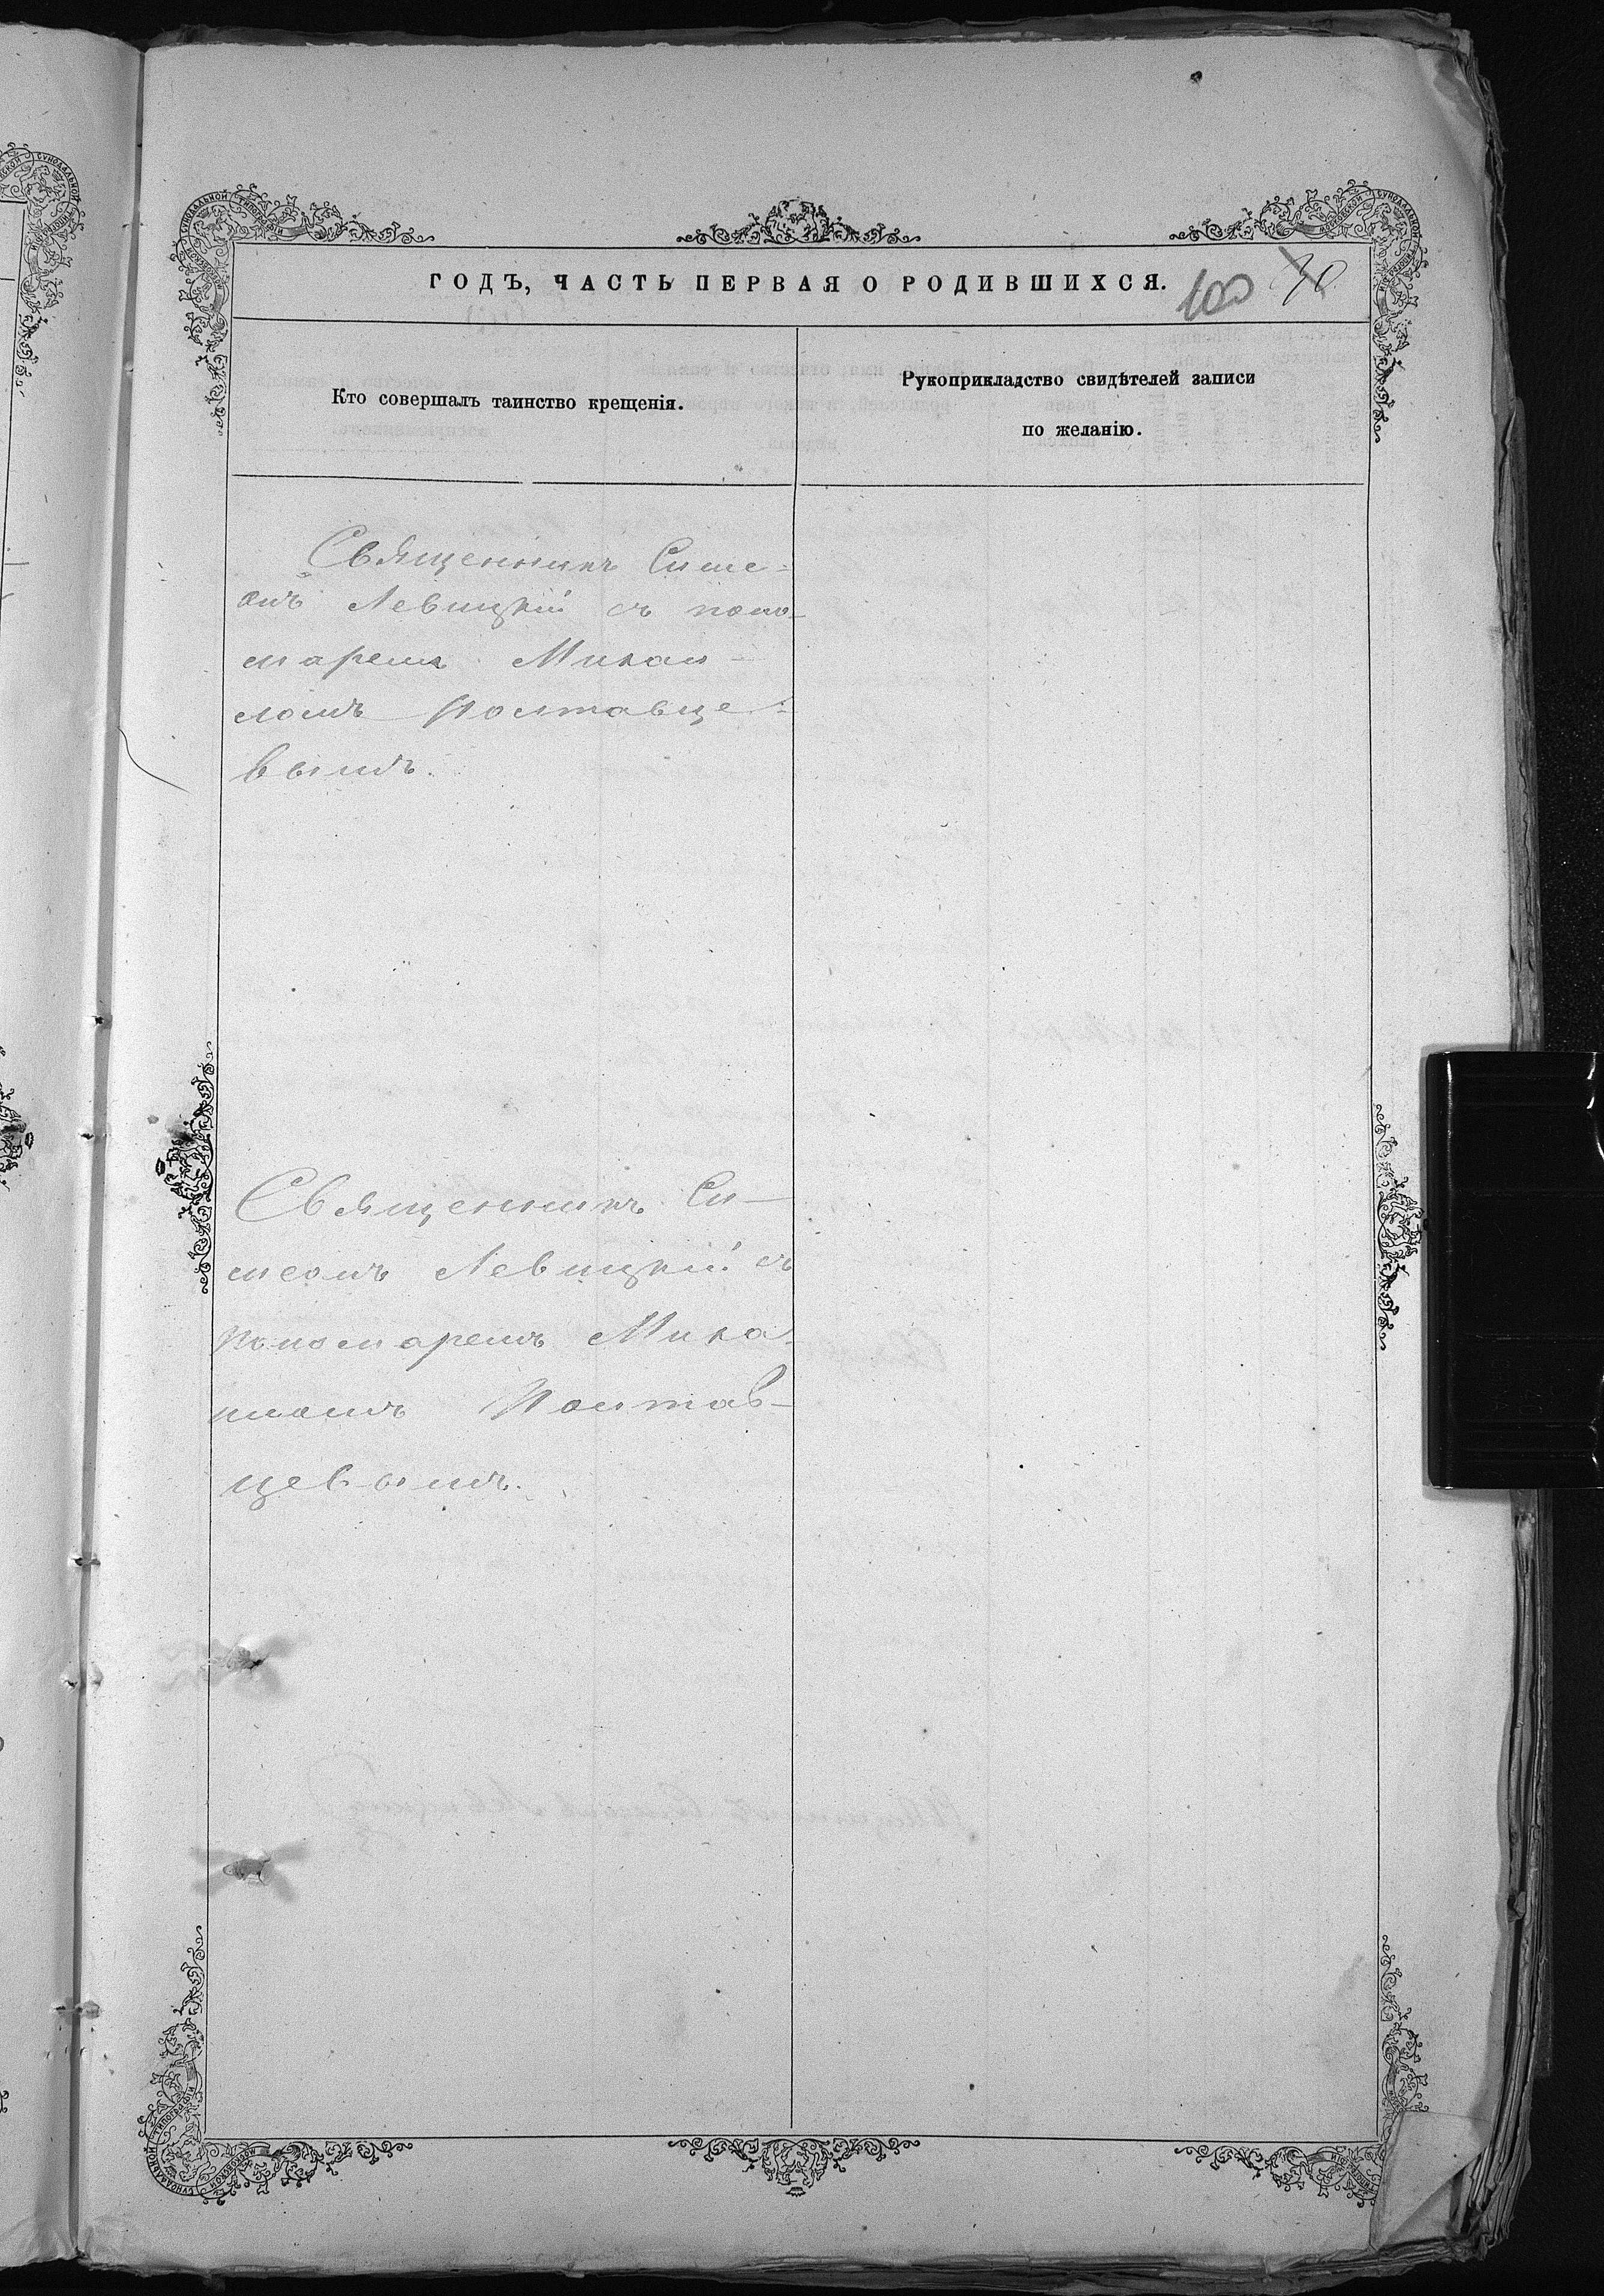 ГОДЪ, ЧАСТЬ ПЕРВАЯ О РОДИВШИХСЯ.
100
Кто совершалъ таинство крещенія.
Рукоприкладство свидѣтелей записи
по желанію.
Священникъ Симе-
онъ Левицкій съ поно-
маремъ Михаи-
ломъ Полтавце-
вымъ.
Священникъ Си-
меонъ Левицкій съ
пономаремъ Миха-
иломъ Полтав-
цевымъ.